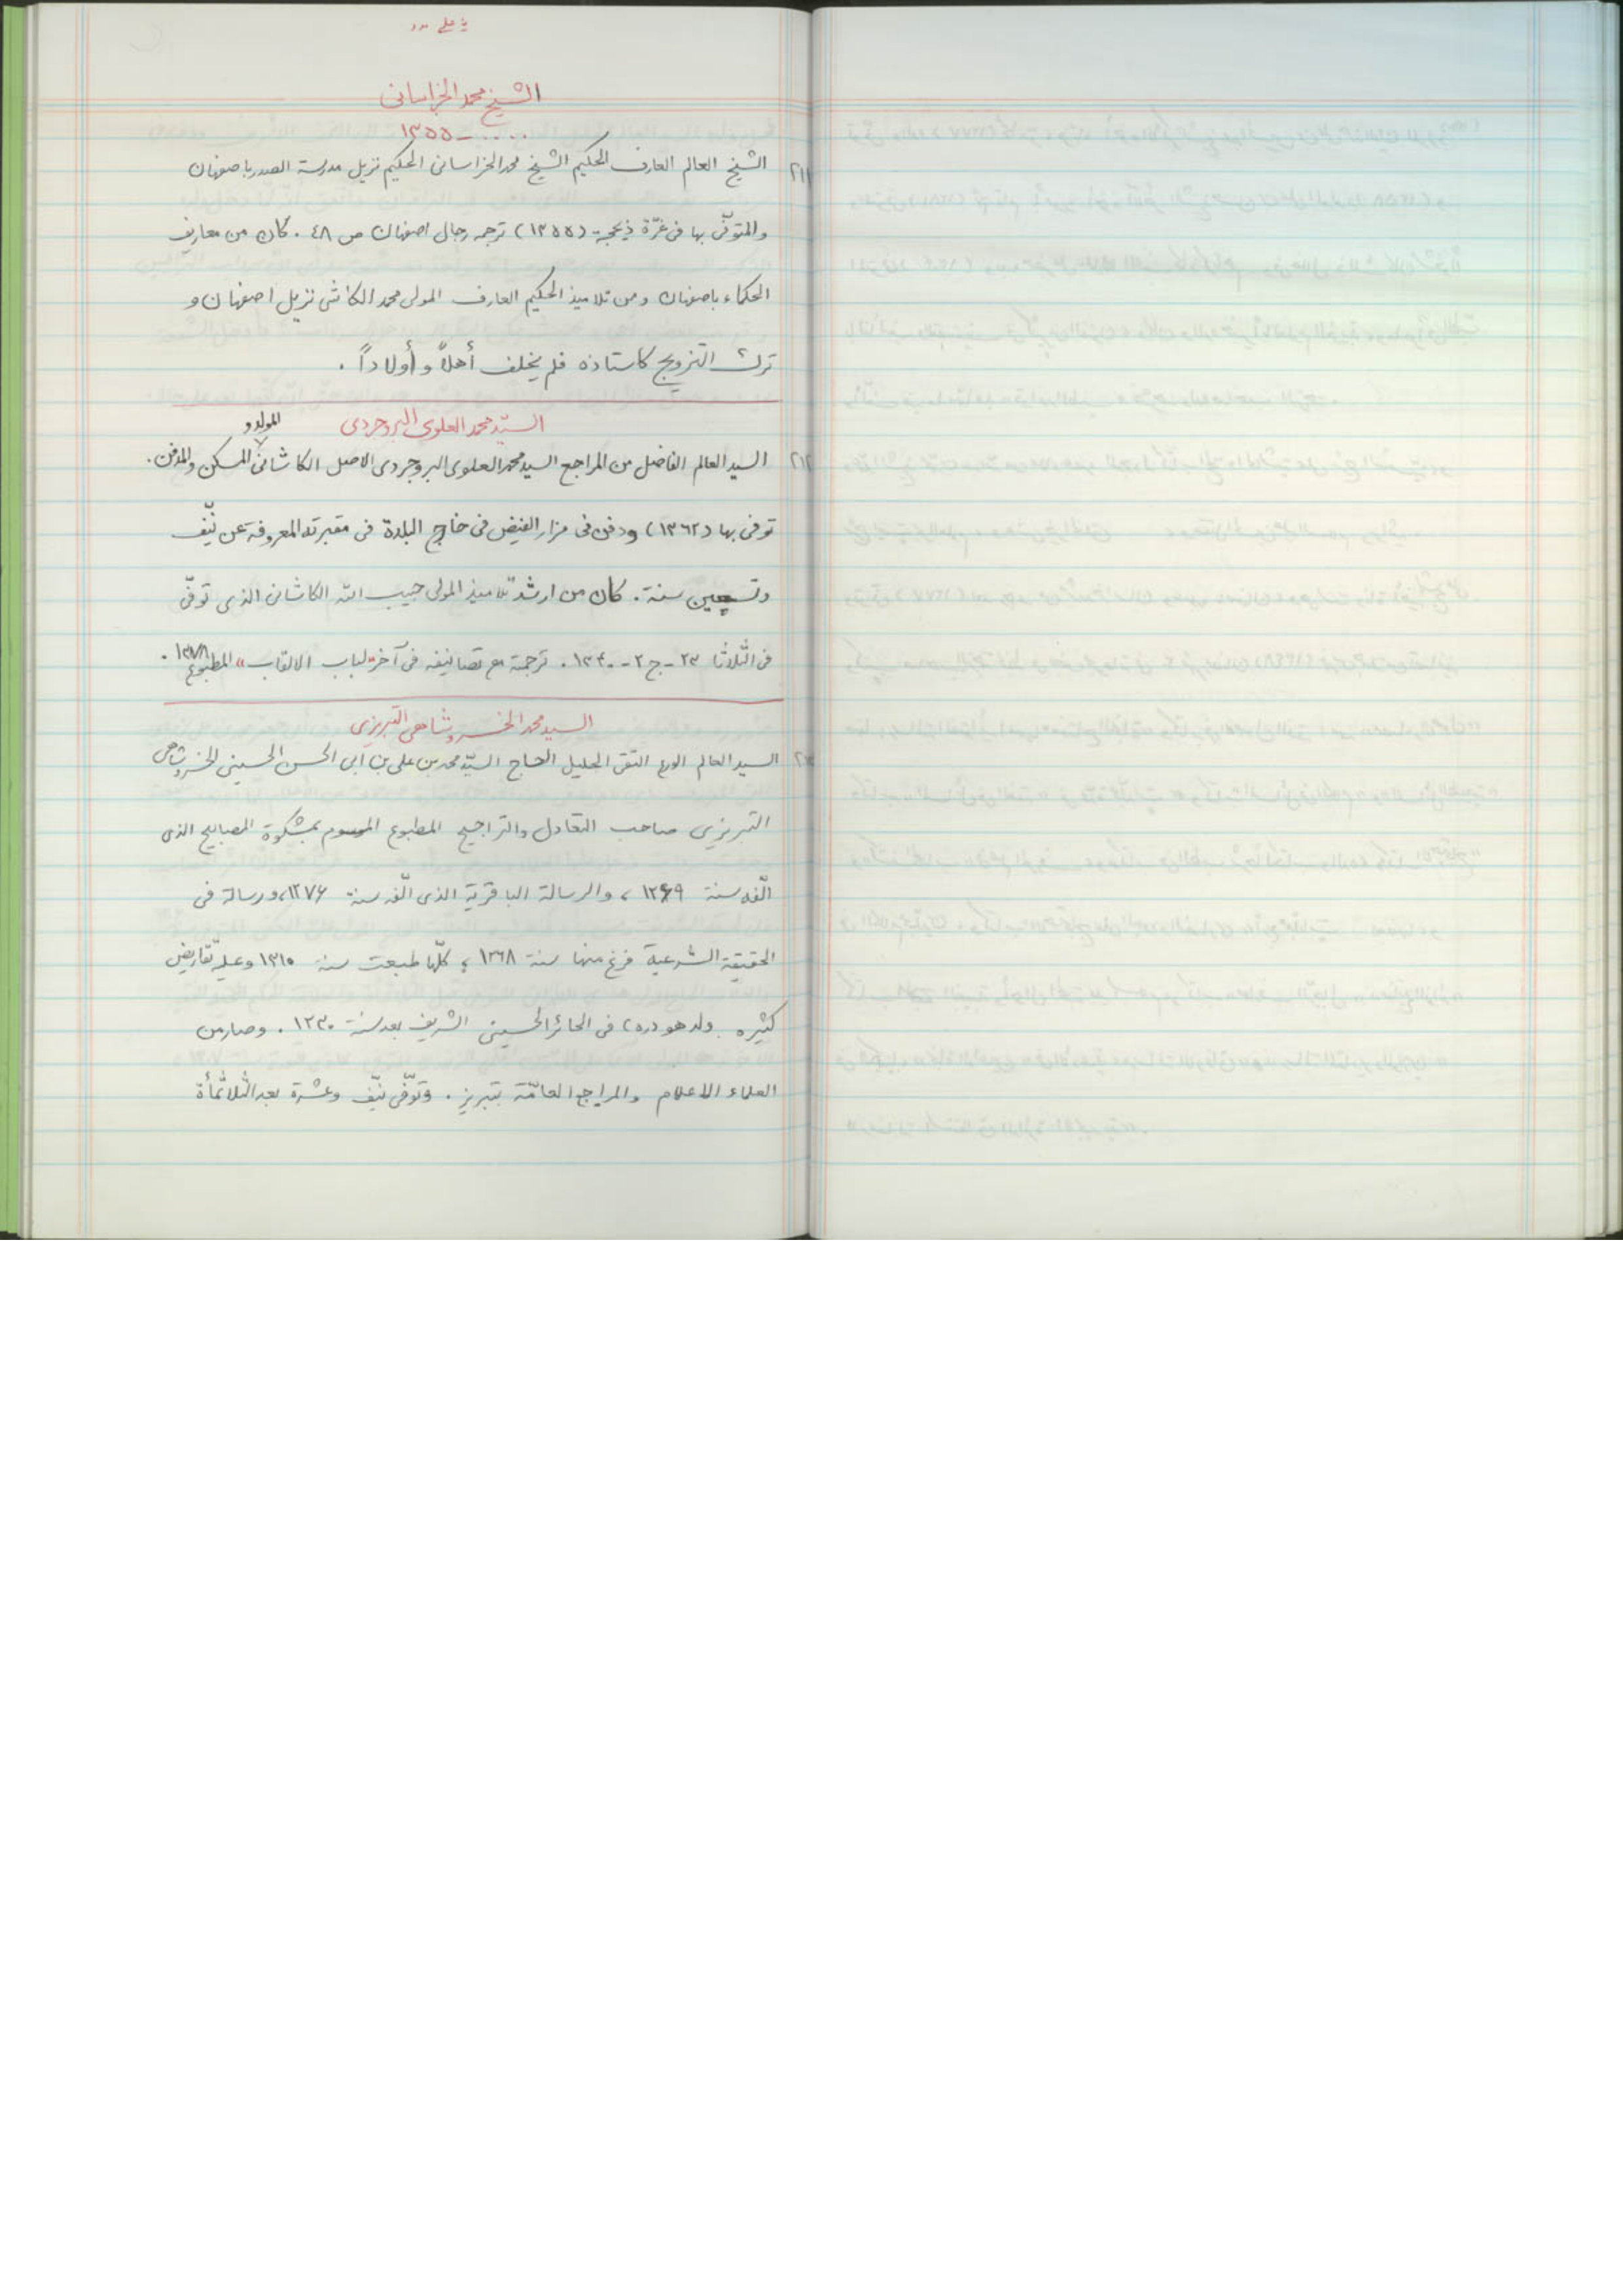 الشيخ محمد الخراسانى
.... - ١٣٥٥
٢١١ الشيخ العالم العارف الحكيم الشيخ محمد الخراسانى الحكيم نزيل مدرسة الصدر باصفهان
والمتوفّى بها فى غرّة ذيحجة (١٣٥٥) ترجمه رجال اصفهان ص ٤٨ . كان من معاريف
الحكماء باصفهان ومن تلاميذ الحكيم العارف المولى محمد الكاشى نزيل اصفهان و
ترك التزويج كاستاذه فلم يخلف أهلاً و أولاداً .
السيّد محمد العلوى البروجردى
٢١٢ السيد العالم الفاضل من المراجع السيد محمد العلوى البروجردى الاصل الكاشانى المولد و المسكن والمدفن .
توفى بها (١٣٦٢) ودفن فى مزار الفيض فى خارج البلدة فى مقبرته المعروفة عن نيّف
وتسعين سنة . كان من ارشد تلاميذ المولى حبيب الله الكاشانى الذى توفّى
فى الثلاثا ٢٣ - ج ٢ - ١٣٤٠ . ترجمة مع تصانيفه فى آخر «لباب الالقاب» المطبوع ١٣٧٨ .
السيد محمد الخسروشاهى التبريزى
السيد العالم الورع التقى الجليل الحاج السيّد محمد بن على بن ابى الحسن الحسينى الخسروشاهى
التبريزى صاحب التعادل والتراجيح المطبوع الموسوم بمشكوة المصابيح الذى
الّفه سنة ١٢٦٩ ، والرسالة الباقرية الذى الّفه سنة ١٢٧٦ ، ورسالة فى
الحقيقة الشرعية فرغ منها سنة ١٢٦٨ ، كلّها طبعت سنة ١٣١٠ وعليه تقاريض
كثيره . ولد هو (ره) فى الحائر الحسينى الشريف بعد سنة ١٢٣٠ . وصار من
العلماء الاعلام والمراجع العامّة بتبريز . وتوّفى نيّف وعشرة بعد الثلاثمأة